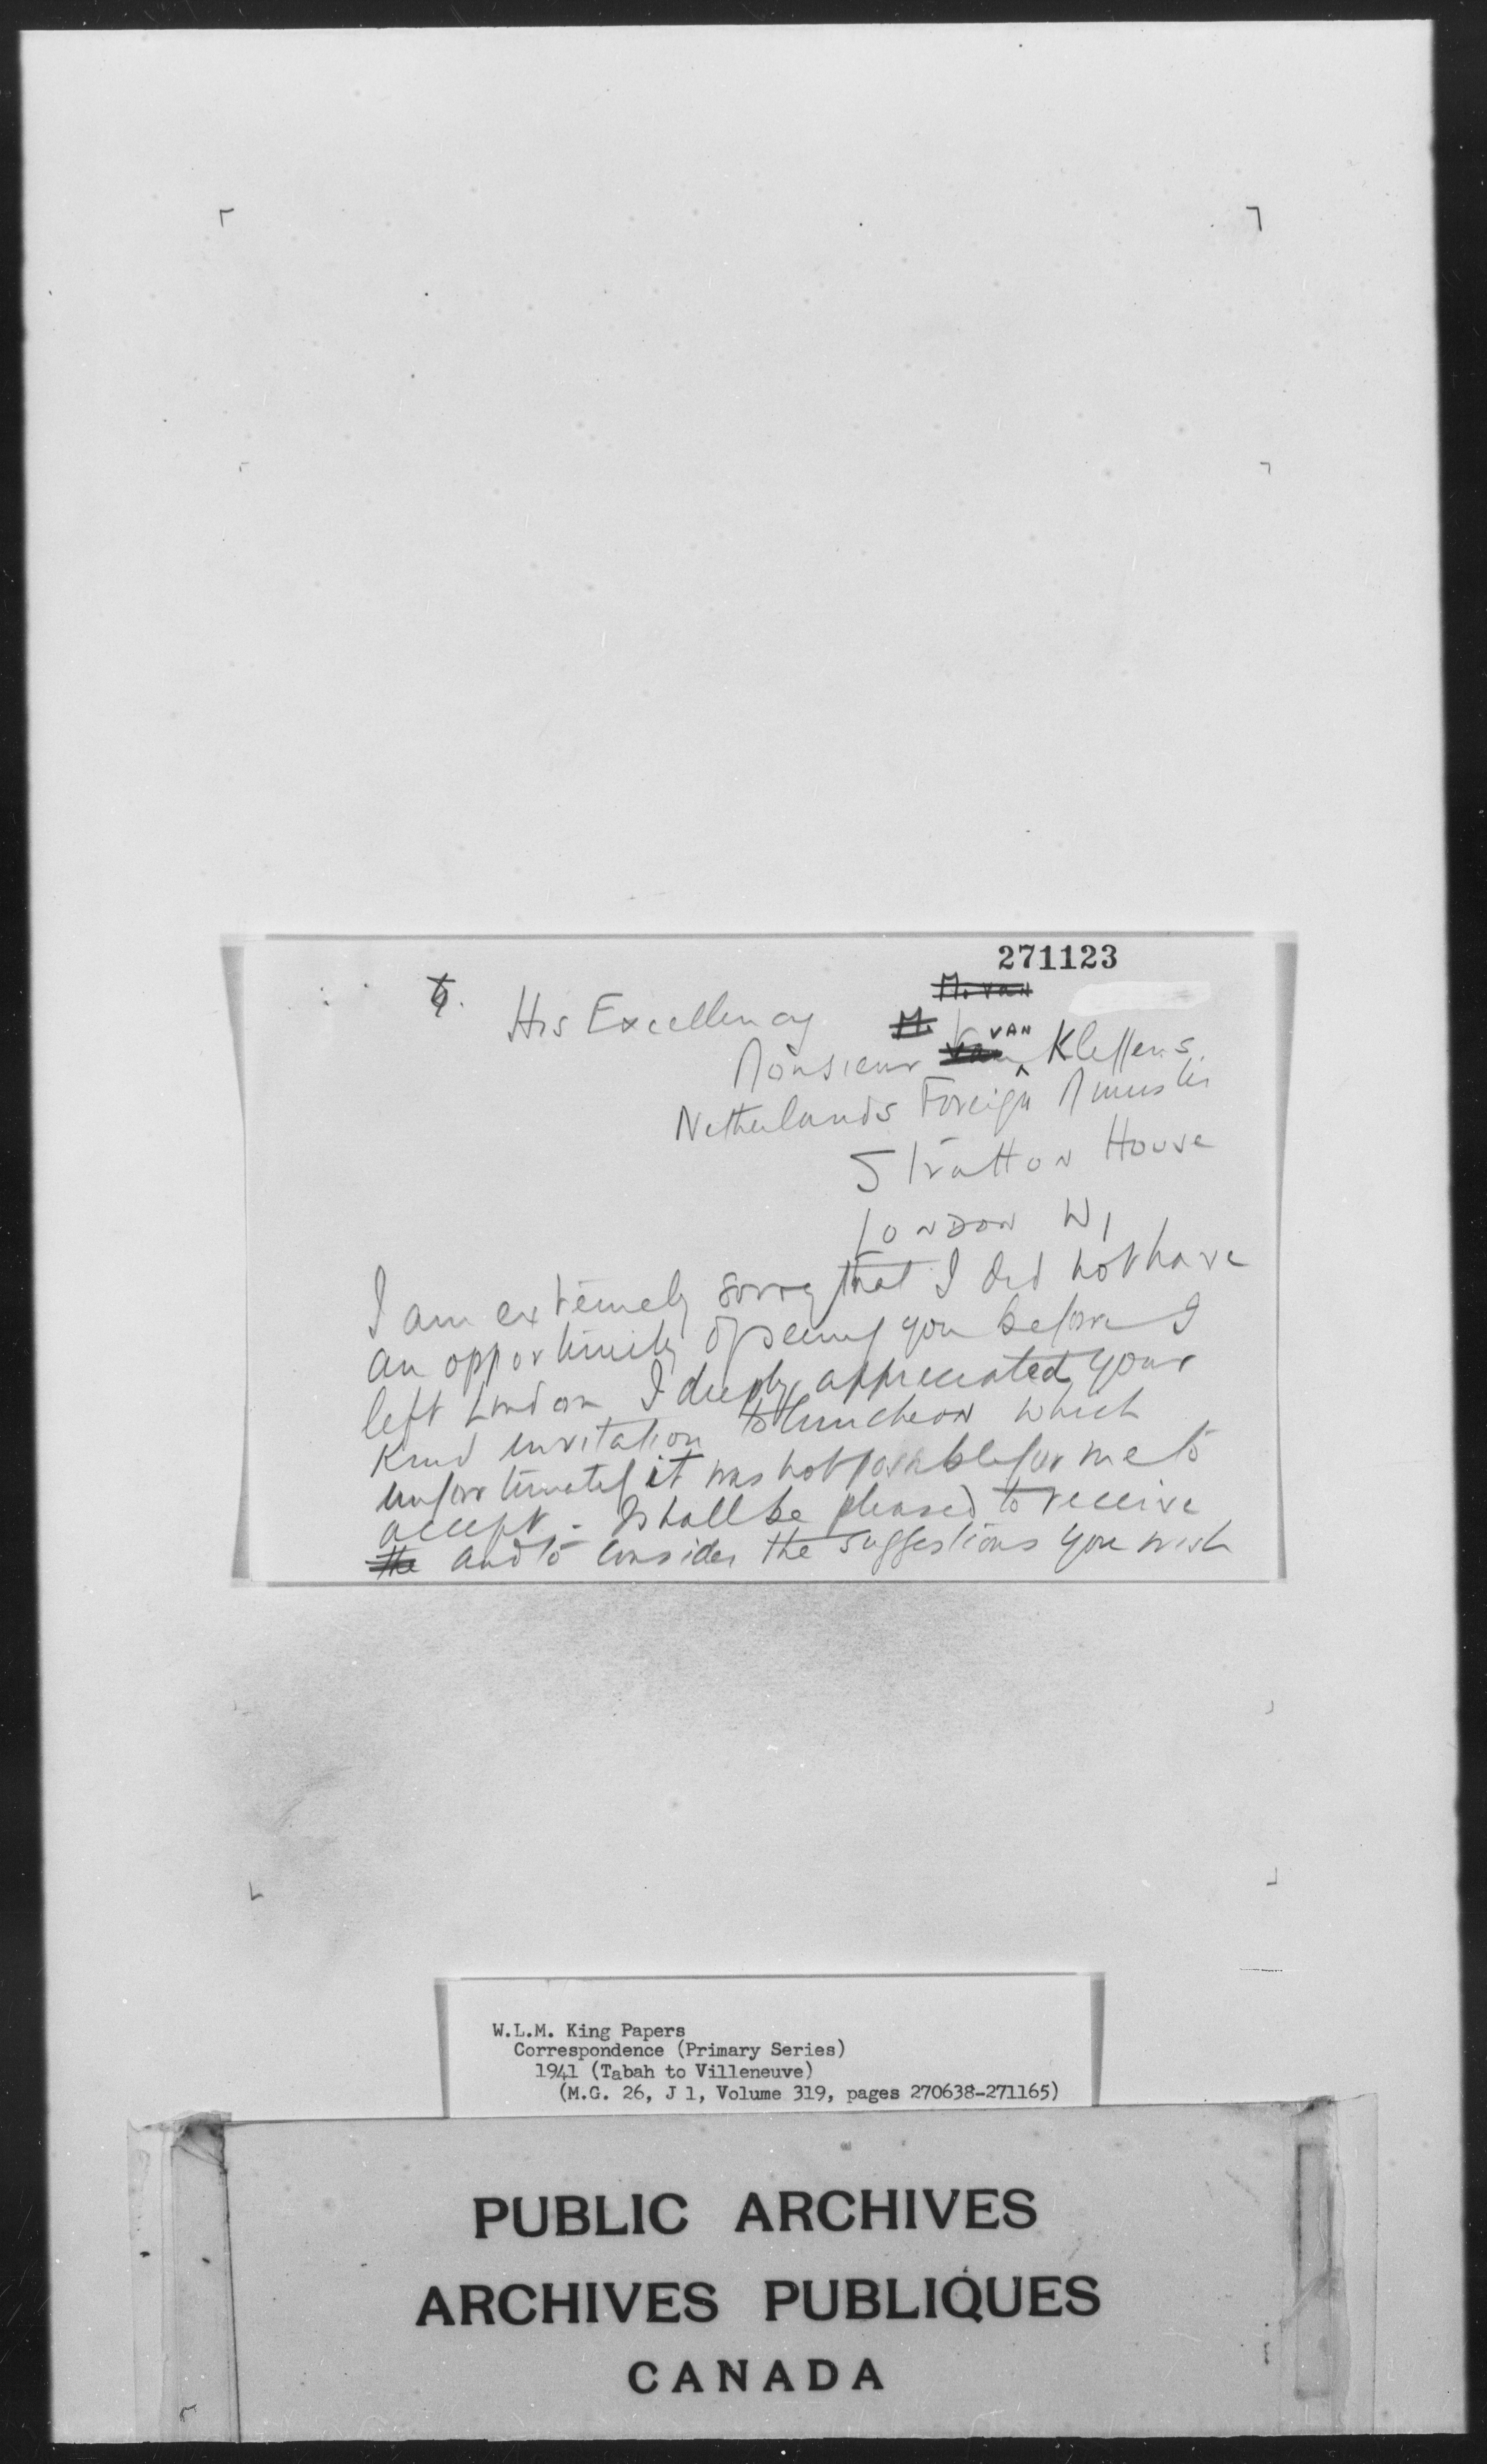 271123
M. van
6. His Excellency M.
Monsieur Van VAN Kleffens.
Netherlands Foreign Minister
Stratton House
LONDON W1
I am extremely sorry that I did not have
an opportunity of seeing you before I
left London I deeply appreciated your
kind invitation to luncheon which
unfortunately it was not possible for me to
accept. I shall be pleased to receive
the and to consider the suggestions you wish
W.L.M. King Papers
Correspondence (Primary Series)
1941 (Tabah to Villeneuve)
(M.G. 26, J 1, Volume 319, pages 270638-271165)
PUBLIC ARCHIVES
ARCHIVES PUBLIQUES
CANADA